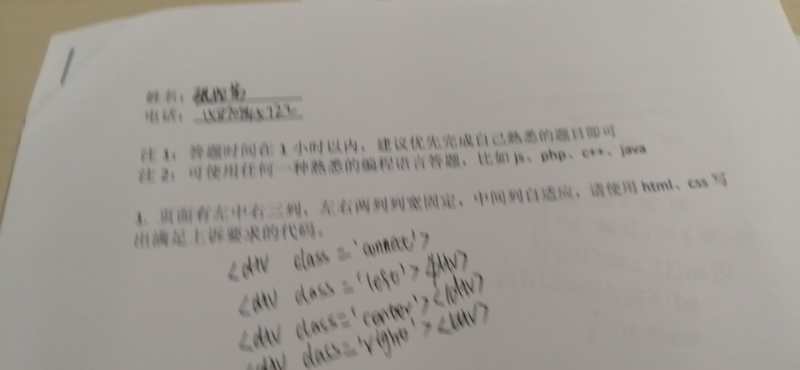 姓名：
电话：
注 1：答题时间在 1 小时以内，建议优先完成自己熟悉的题目即可
注 2：可使用任何一种熟悉的编程语言答题，比如 js、php、c++、java
1. 页面有左中右三列，左右两列列宽固定，中间列自适应，请使用 html、css 写
出满足上诉要求的代码。
<div class='connect'>
<div class='left'></div>
<div class='center'></div>
<div class='right'></div>